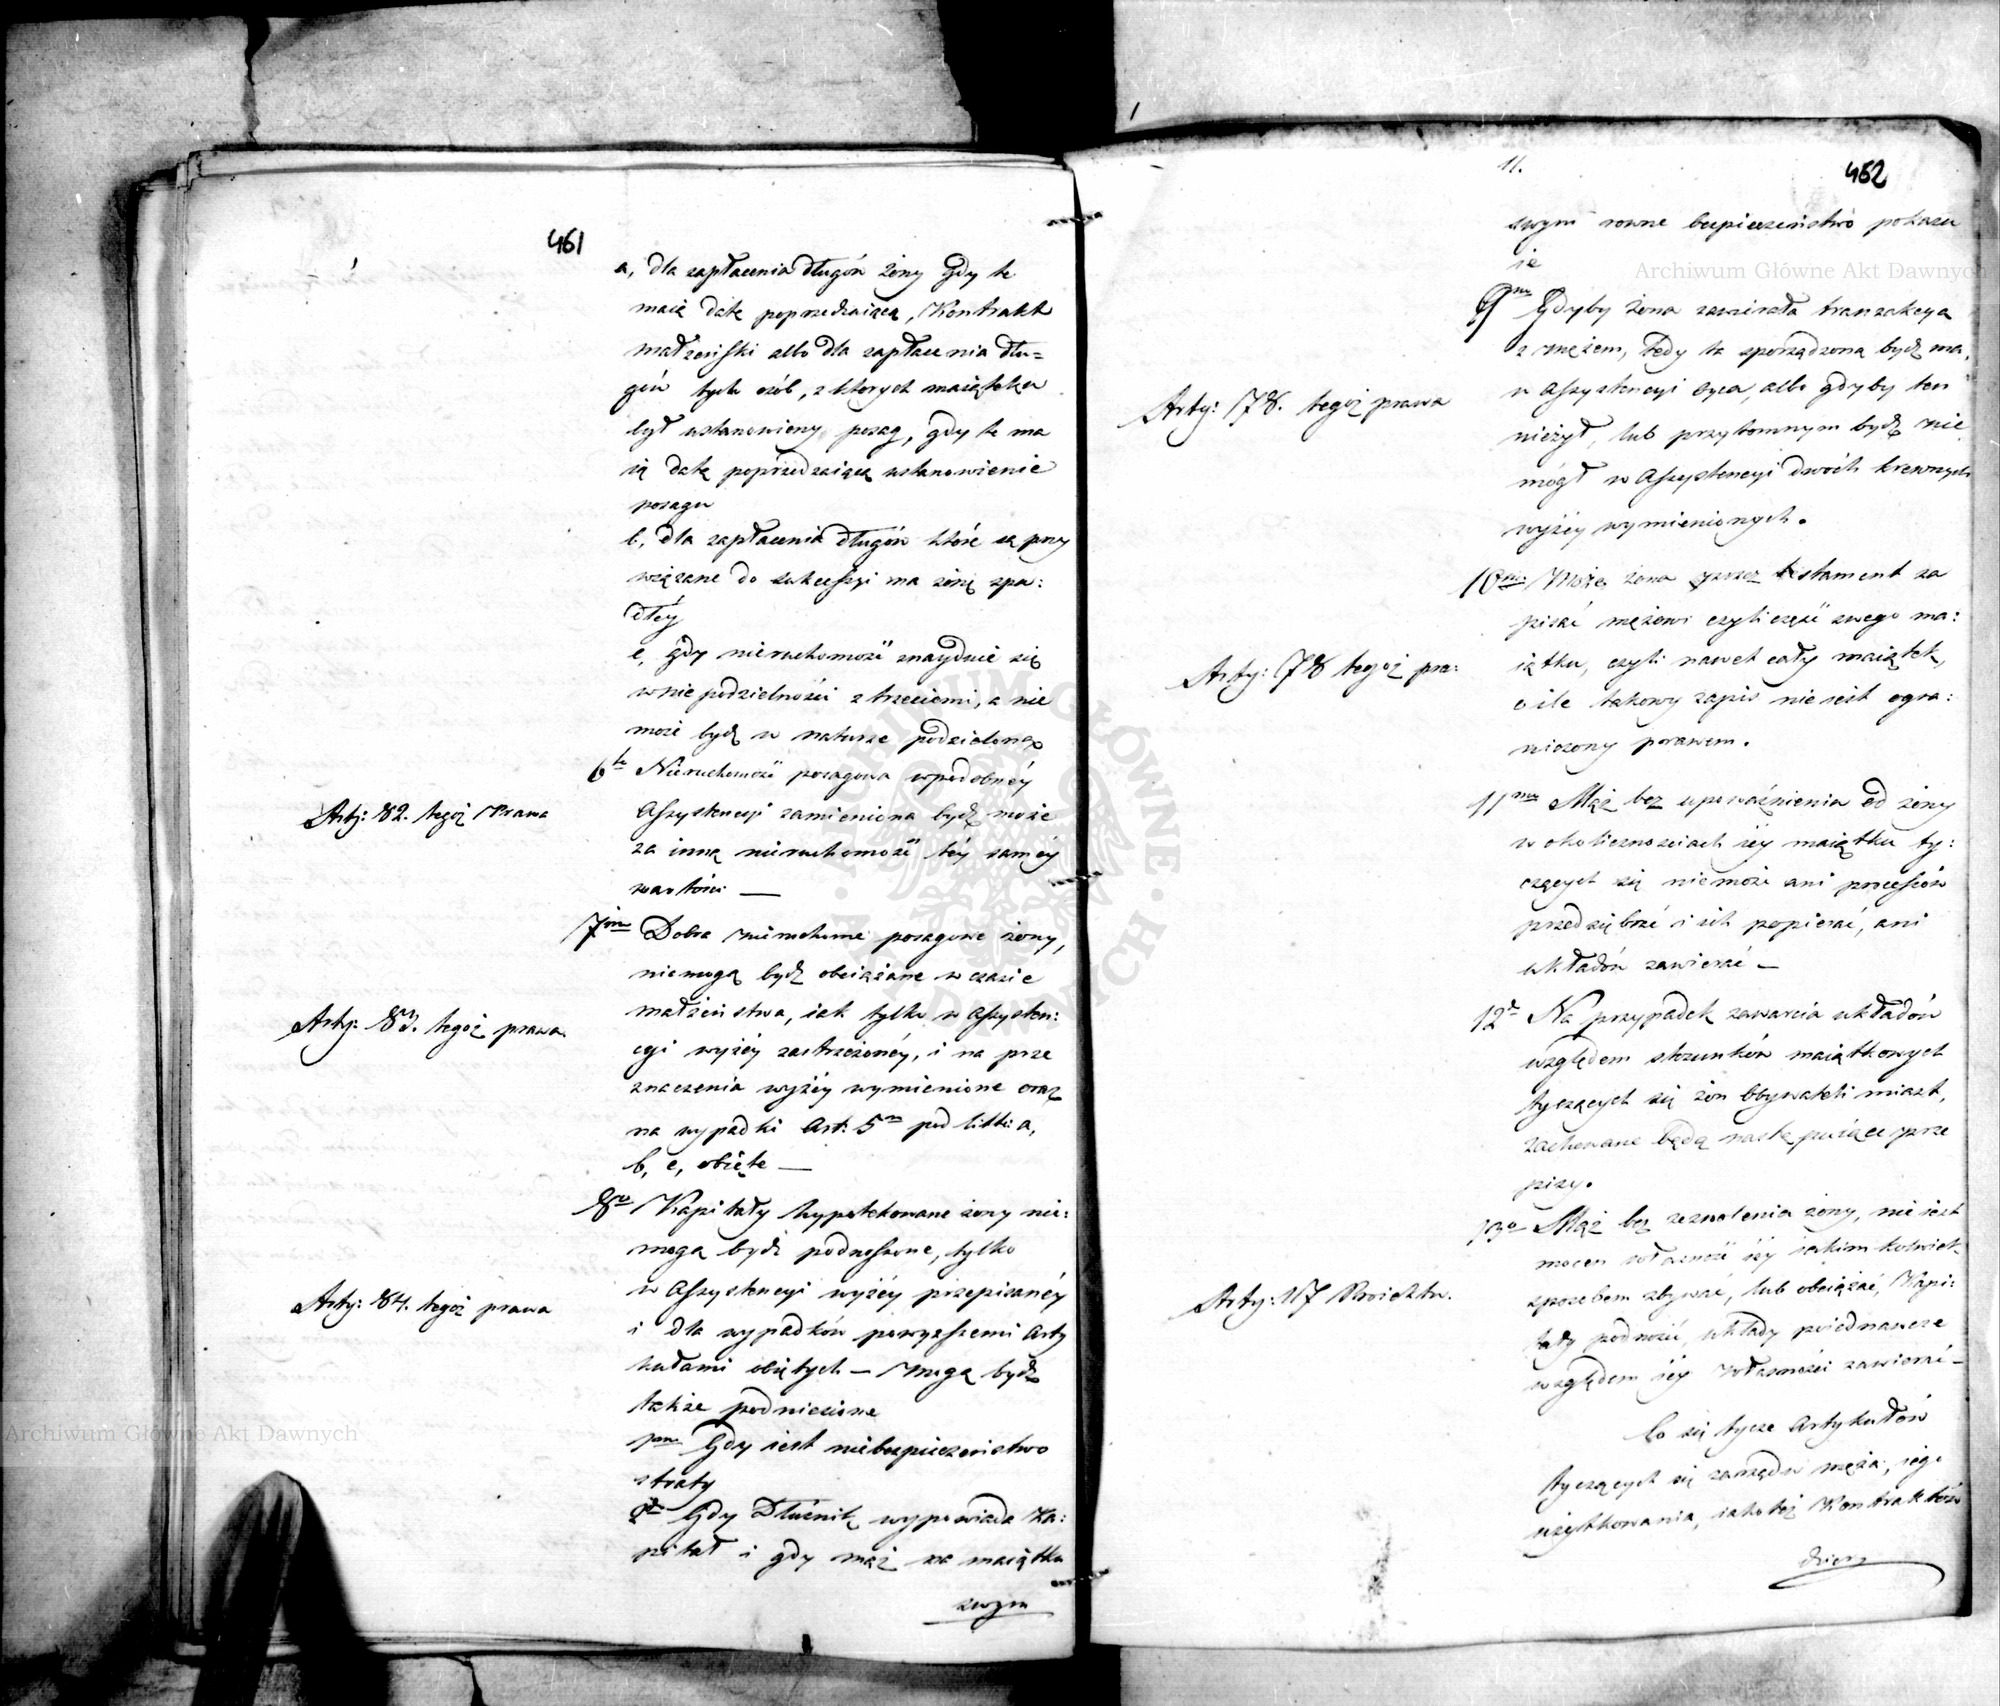 461
a, dla zapłacenia długów żony gdy te
maią datę poprzedzaiącą, Kontrakt
małżeński albo dla zapłacenia dłu=
gów tych osób, z ktorych maiąteku
był ustanowiony posag, gdy te ma
ią datę poprzedzaiącą ustanowienie
posagu
b, dla zapłacenia długów które są przy
wiązane do sukcessyi na żonę spa:
dłéy
c, gdy nieruchomość znayduie się
w niepodzielności z trzeciemi, a nie
może bydź w naturze podzielona
Arty: 82. tegoż Prawa
6te Nieruchomość posagowa w podobnéy
Assystencyi zamieniona bydź może
za inną nieruchomość téy saméy
wartości —
Arty: 83. tegoż prawa
7me Dobra nieruchome posagowe żony,
niemogą bydź obciążane w czasie
małżeństwa, iak tylko w Assysten:
cyi wyżéy zastrzeżonéy, i na prze
znaczenia wyżéy wymienione oraz
na wypadki Art: 5m pod litt: a,
b, c, obięte —
Arty: 84. tegoż prawa
8o Kapitały hypotekowane żony nie:
mogą bydź podnoszone, tylko
w Assystencyi wyżéy przepisanéy
i dla wypadków powyższemi Arty
kułami obiętych — Mogą bydź
także podniesione
1mo Gdy iest niebezpieczeństwo
straty
2do Gdy Dłużnik wypowiada Ka:
pitał i gdy mąż na maiątku
swym
11.
462
swym rowne bezpieczeństwo pokazu
ie
Arty: 78. tegoż prawa
9me Gdyby żona zawierała tranzakcya
z mężem, tedy ta sporządzona bydź ma,
w Assystencyi oyca, albo gdyby ten
nieżył, lub przytomnym bydź nie
mógł w Assystencyi dwóch krewnych
wyżéy wymienionych.
Arty: 78 tegoż pra:
10me: Może żona przez testament za
pisać mężowi czyli część swego ma:
iątku, czyli nawet cały maiątek,
o ile takowy zapis nie iest ogra:
niczony prawem.
11me Mąż bez upoważnienia od żony
w okolicznościach iéy maiątku ty:
czących się niemoże ani processów
przedsiębrać i ich popierać, ani
układów zawierać —
12o Na przypadek zawarcia układów
względem stosunków maiątkowych
tyczących się żon Obywateli miast,
zachowane będą następuiące prze
pisy.
Arty: 117 Proiektu.
13o Mąż bez zezwolenia żony, nie iest
mocen własność iéy iakim kolwiek
sposobem zbywać, lub obciążać, Kapi:
tały podnosić, układy poiednawcze
względem iéy własności zawierać —
Co się tycze Artykułów
tyczących się zarządu męża, iego
użytkowania, iako też Kontraktów
dzier